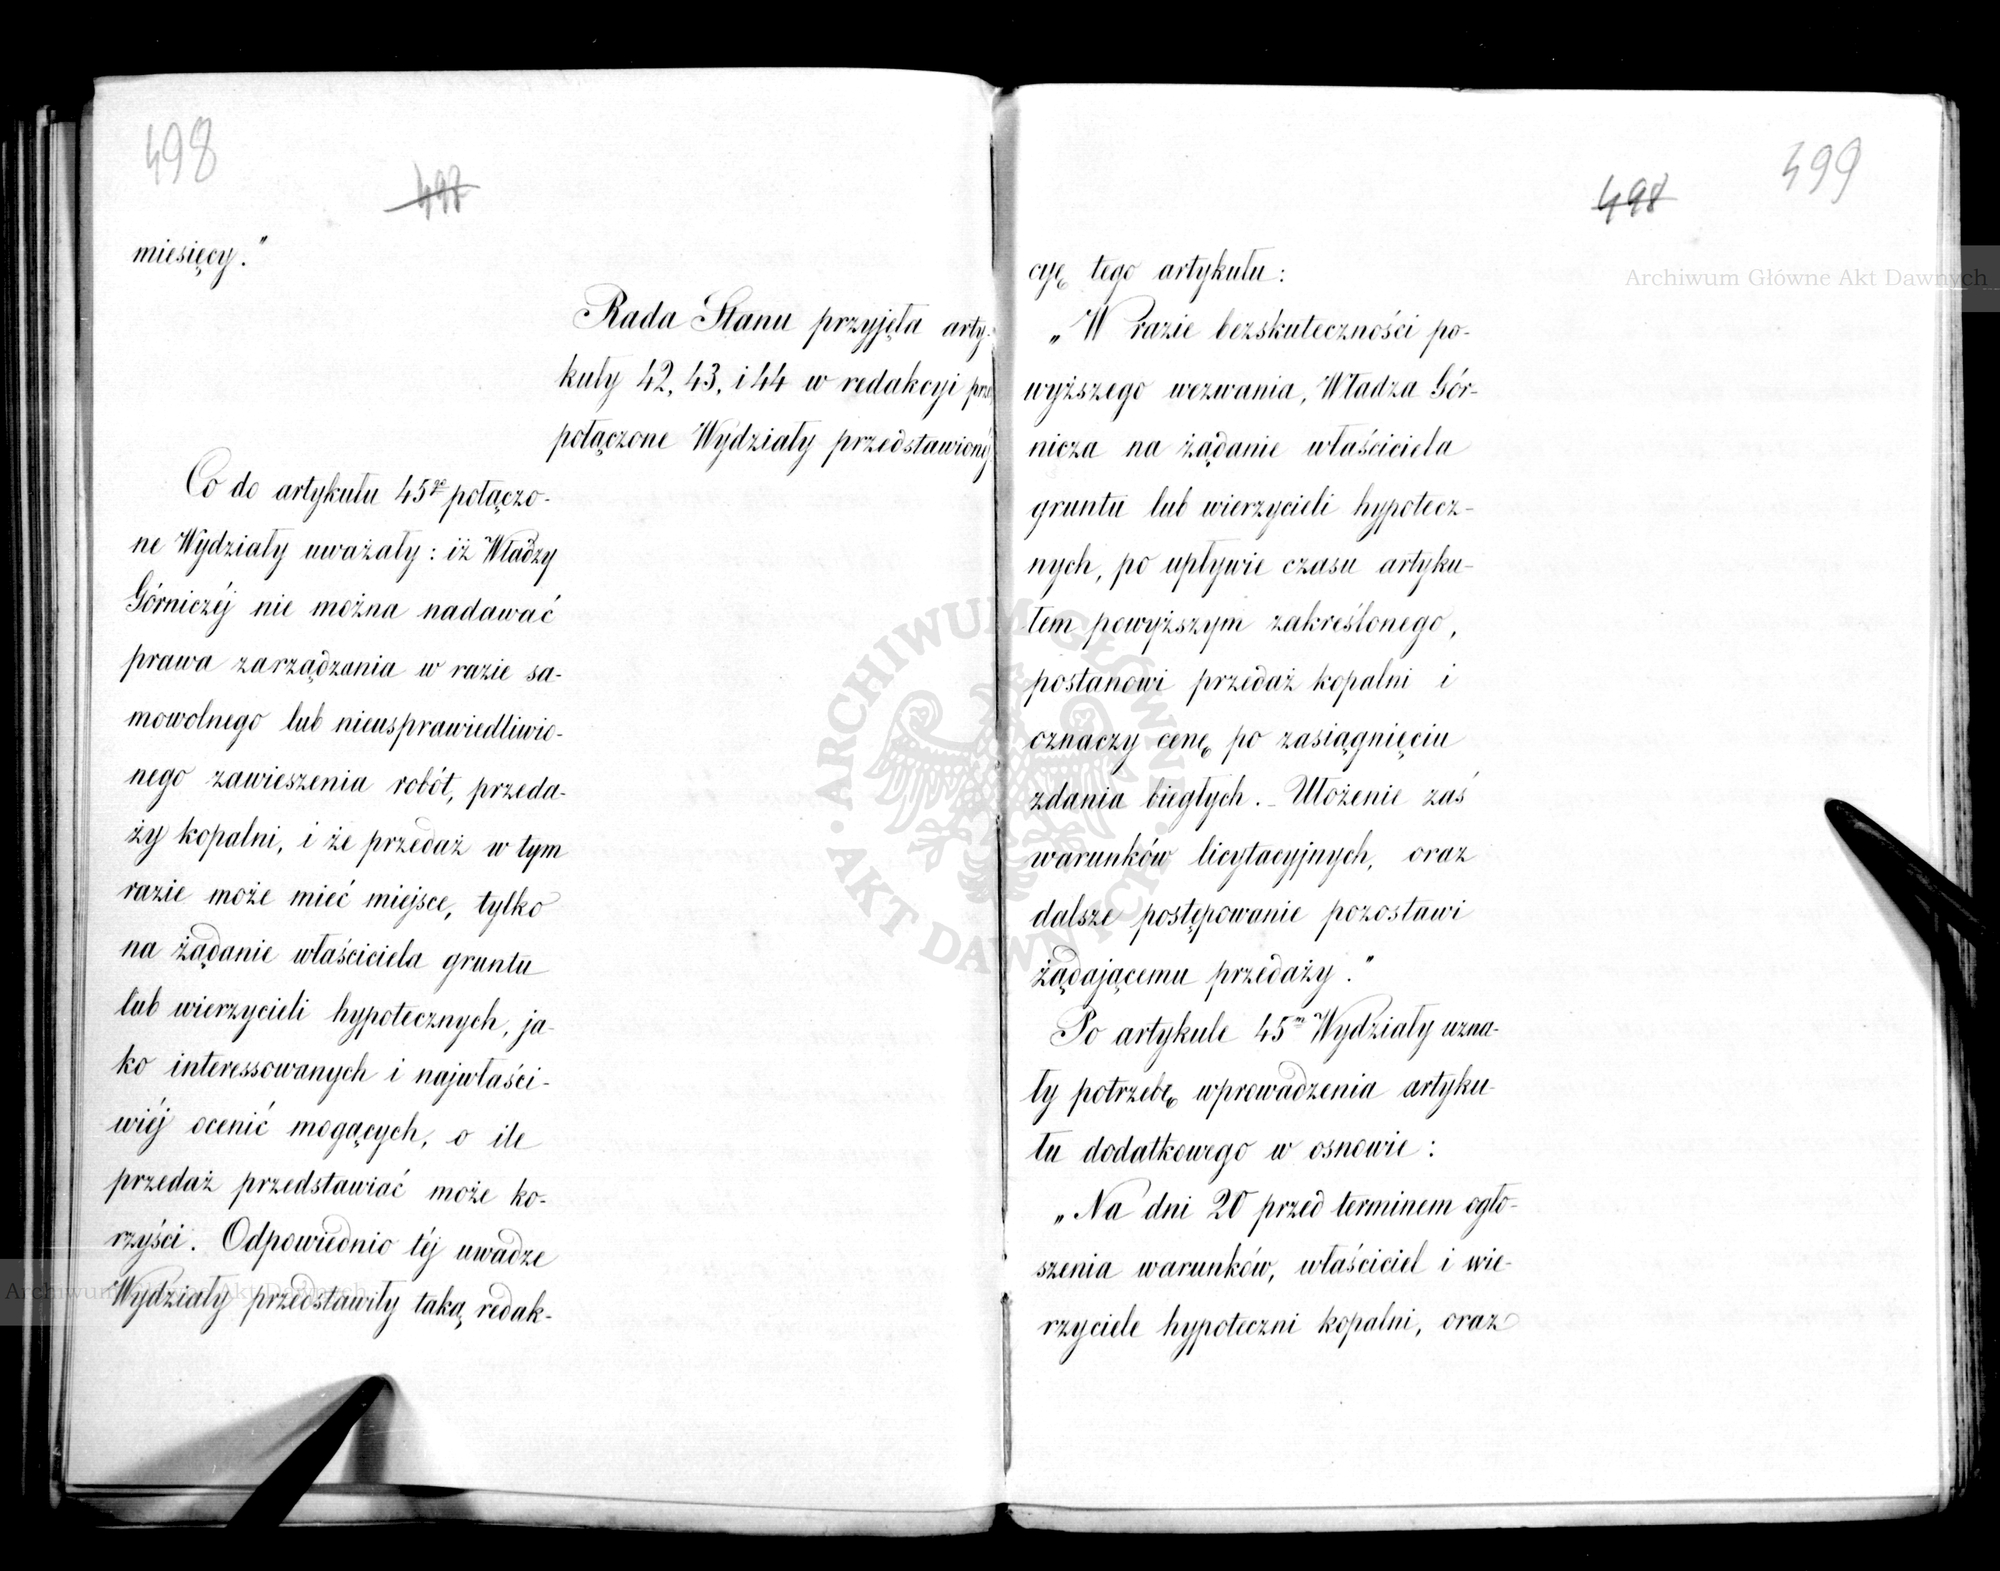 498
497
miesięcy."
Rada Stanu przyjęła arty-
kuły 42, 43, i 44 w redakcyi prze
połączone Wydziały przedstawionéj
Co do artykułu 45go połączo-
ne Wydziały uważały: iż Władzy
Górniczéj nie można nadawać
prawa zarządzania w razie sa-
mowolnego lub nieusprawiedliwio-
nego zawieszenia robót, przeda-
ży kopalni, i że przedaż w tym
razie może mieć miejsce, tylko
na żądanie właściciela gruntu
lub wierzycieli hypotecznych, ja-
ko interessowanych i najwłaści-
wiéj ocenić mogących, o ile
przedaż przedstawiać może ko-
rzyści. Odpowiednio téj uwadze
Wydziały przedstawiły taką redak-
499
498
cyę tego artykułu:
„W razie bezskuteczności po-
wyższego wezwania, Władza Gór-
nicza na żądanie właściciela
gruntu lub wierzycieli hypotecz-
nych, po upływie czasu artyku-
łem powyższym zakreślonego,
postanowi przedaż kopalni i
oznaczy cenę po zasiągnięciu
zdania biegłych. – Ułożenie zaś
warunków licytacyjnych, oraz
dalsze postępowanie pozostawi
żądającemu przedaży."
Po artykule 45m Wydziały uzna-
ły potrzebę wprowadzenia artyku-
łu dodatkowego w osnowie:
„Na dni 20 przed terminem ogło-
szenia warunków, właściciel i wie-
rzyciele hypoteczni kopalni, oraz
Archiwum Główne Akt Dawnych
ARCHIWUM GŁÓWNE · AKT DAWNYCH ·
Archiwum Główne Akt Dawnych